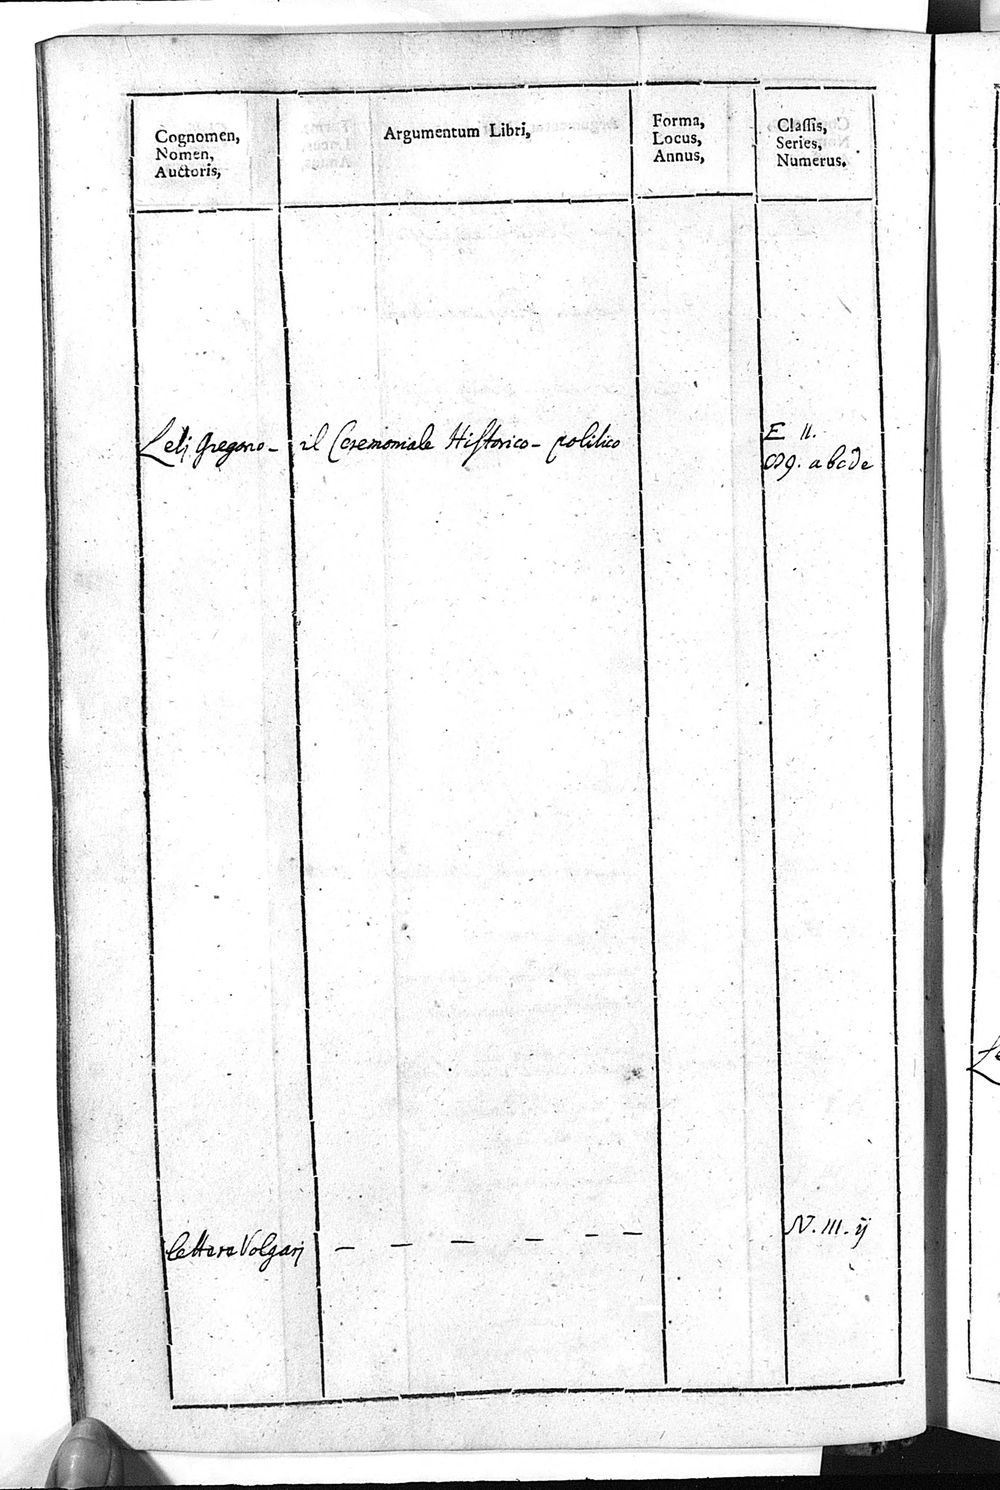 Cognomen,
Nomen,
Auctoris,
Argumentum Libri,
Forma,
Locus,
Annus,
Classis,
Series,
Numerus.
Leti Gregorio - il Ceremoniale Historico - politico
E II.
abcde
Lettere Volgari — — — — — —
N. III. ij
Le